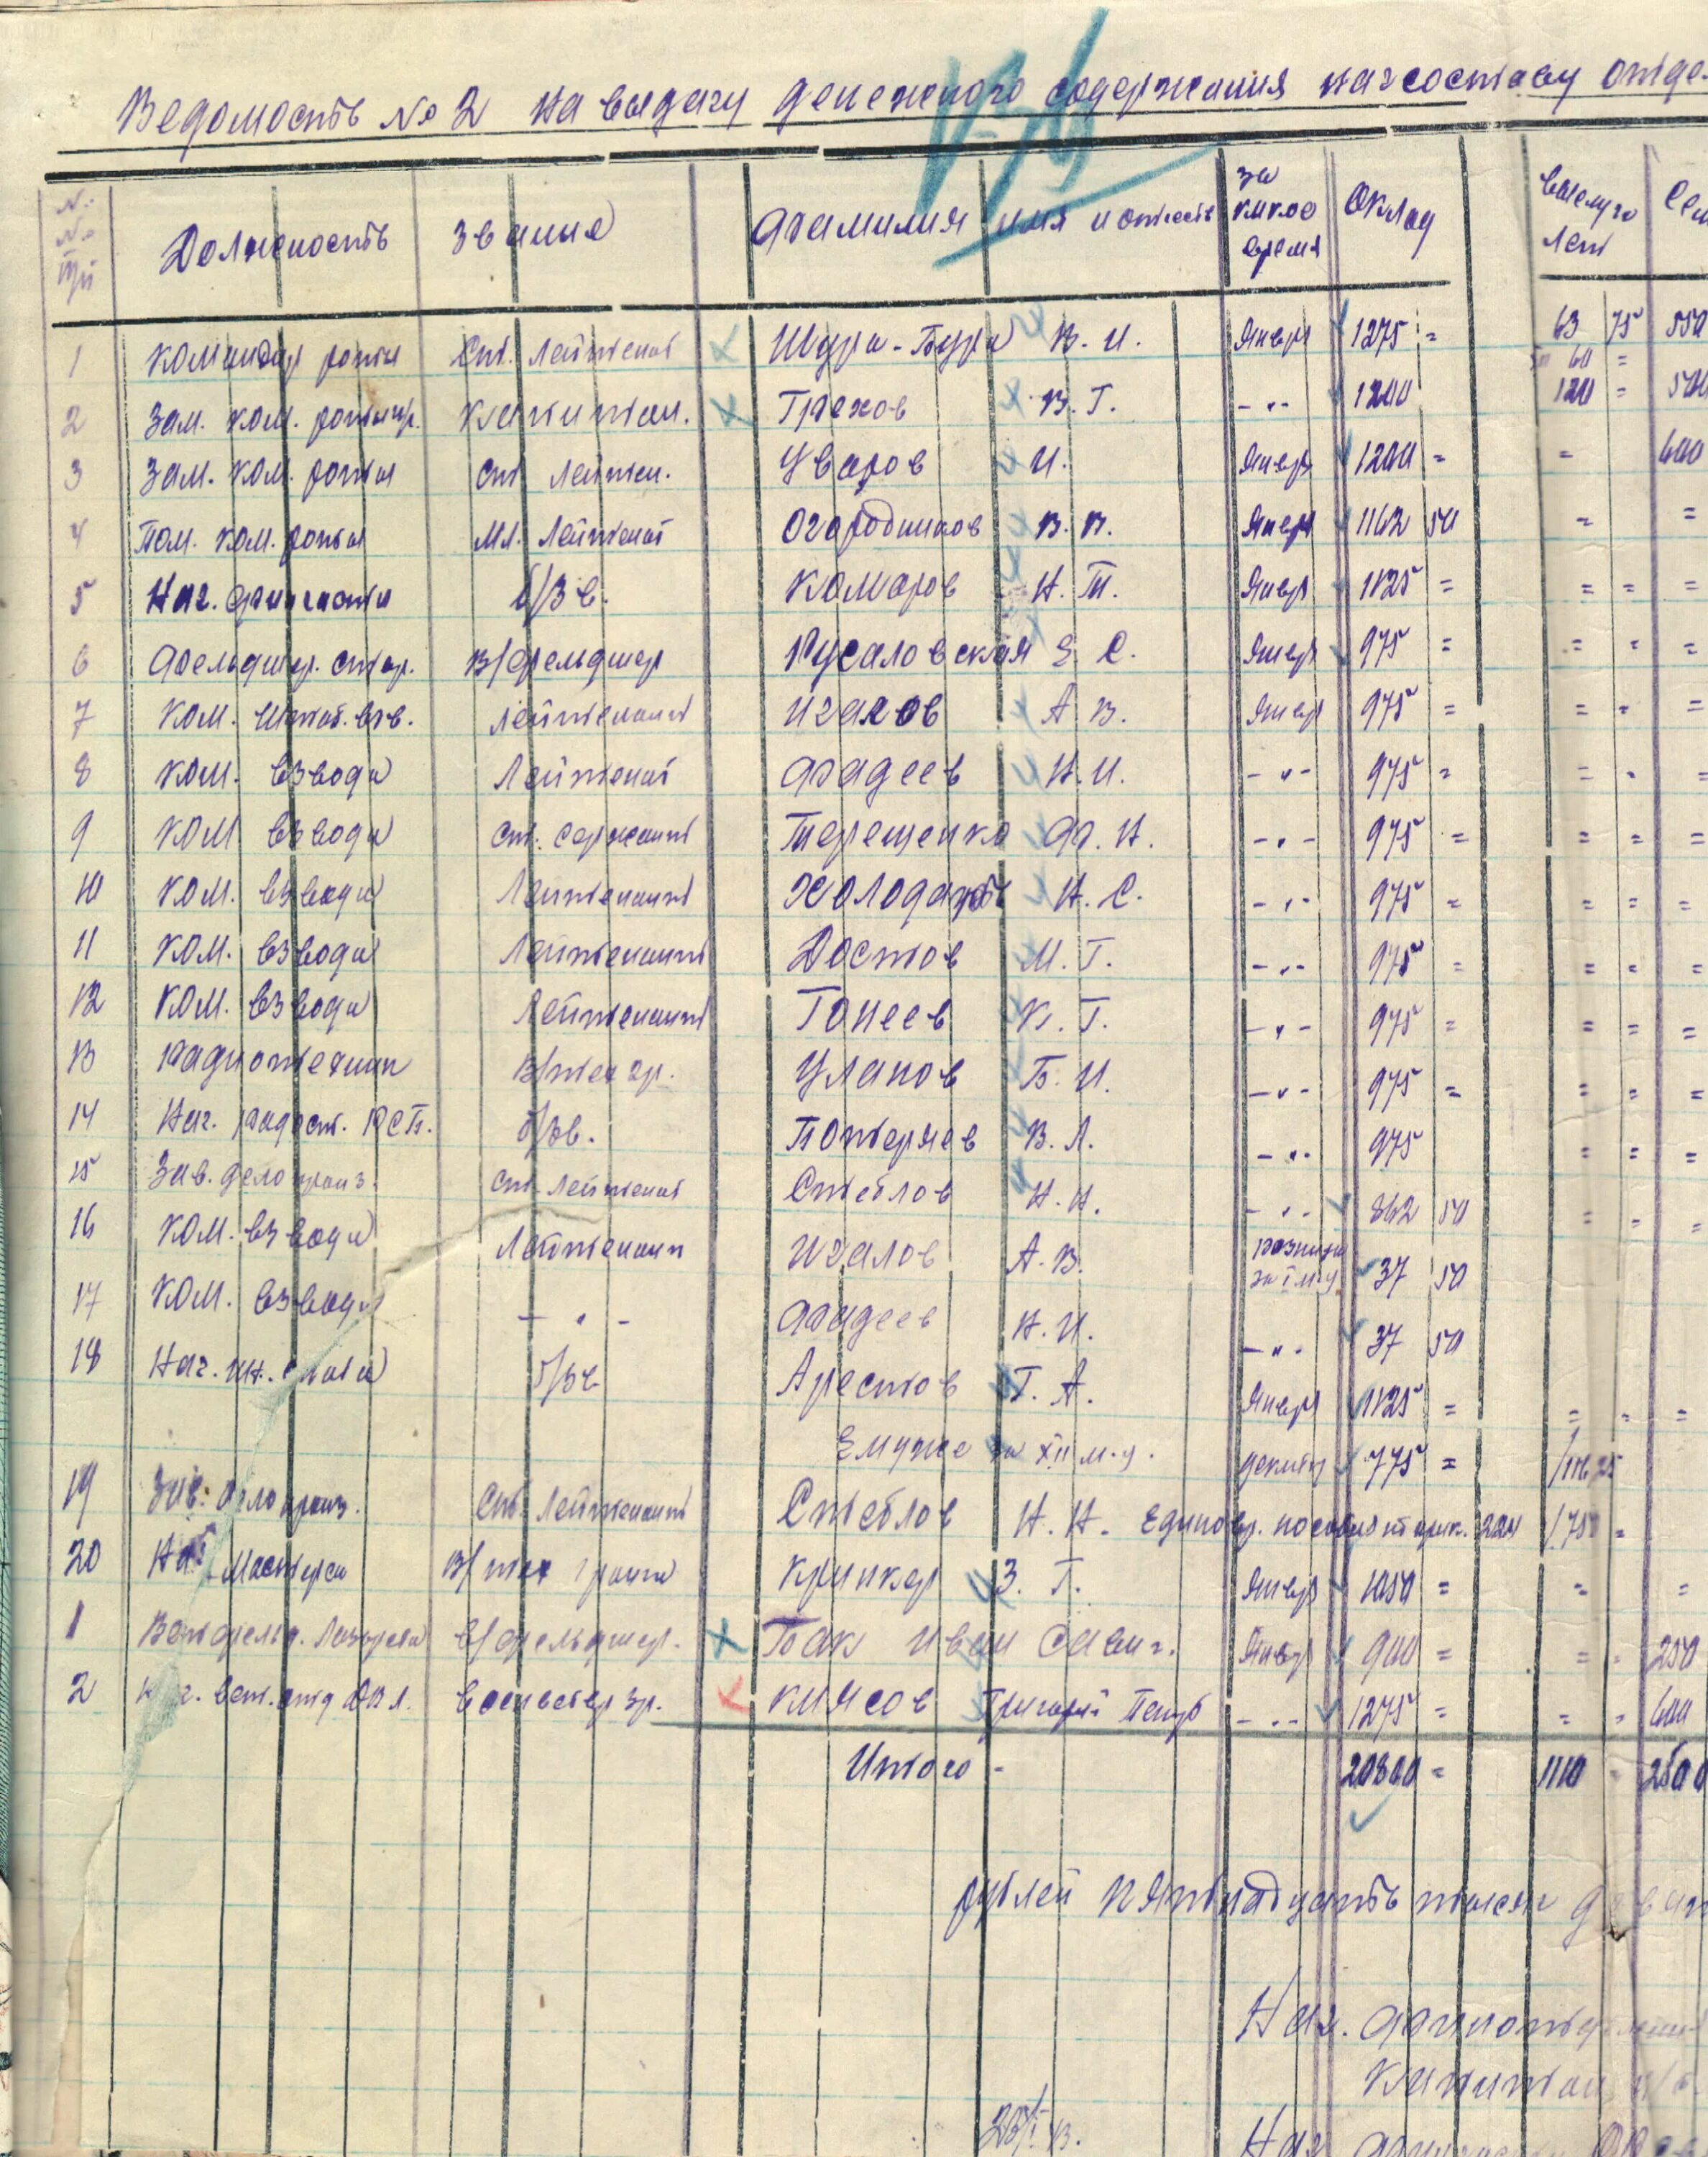 Ведомость № 2 на выдачу денежного содержания начсоставу отде
№ № п/п Должность Звание Фамилия имя и отчеств за какое время Оклад выслуго лет
1 Командир роты Ст. Лейтенат Шура-Бура В. И. Январ 1275 = 63 75 550
60 =
2 Зам. ком. роты Капитан. Грехов В. Г. -"- 1200 120 = 500
3 Зам. ком. роты Ст Лейтен. Уваров И. Январ 1200 = = 600
4 Пом. ком. роты Мл. Лейтенат Огородников В. В. Январ 1162 50 = =
5 Нач. финчасти б/Зв. Комаров Н. Т. Январ 1125 = = = =
6 Фельдшер. стар. В/фельдшер Русаловская Е С. Январ 975 = = = =
7 Ком. Штаб. взв. Лейтенант Игалов А В. Январ 975 = = = =
8 Ком. взвода Лейтенат Фадеев Н. И. -"- 975 = = = =
9 Ком взвода Ст. Сержант Терещенко Ф. Н. -"- 975 = = = =
10 Ком. взвода Лейтенант Холодарь Н. С. -"- 975 = = = =
11 Ком. взвода Лейтенант Достов М. Г. -"- 975 = = = =
12 Ком. взвода Лейтенант Гонеев К. Г. -"- 975 = = = =
13 Радиотехник В/тех 2р. Уланов Б. И. -"- 975 = = = =
14 Нач. радост. РСБ. б/зв. Потеряев В. Л. -"- 975 = = =
15 Зав. делопроиз. Ст. Лейтенат Стеблов Н. Н. -"- 862 50 = = =
16 Ком. взвода Лейтенант Игалов А. В. разница за I м-ц 37 50
17 Ком. взвода -"- Фадеев Н. И. -"- 37 50
18 Нач. б/зв Арестов Г. А. Январ 1125 = = = =
Ему же за XII м-ц. декабр 775 =
19 Зав. делопроиз. Ст. Лейтенант Стеблов Н. Н. Единовр. пособия 175 =
20 Нач Мастерск В/тех Крипкер З. Г. Январ 1050 = = =
1 Ветфельд. Лазарета в/фельдшер. Бак Иван Савич. Январ 900 = = = 250
2 Нач. вет. отд ДВЛ. Кмясов Григорий Петр -"- 1275 = = = 600
Итого - 20800 = 1110 = 2500
рублей пятнадцать тысяч
Нач. финотделения
Капитан
Нач